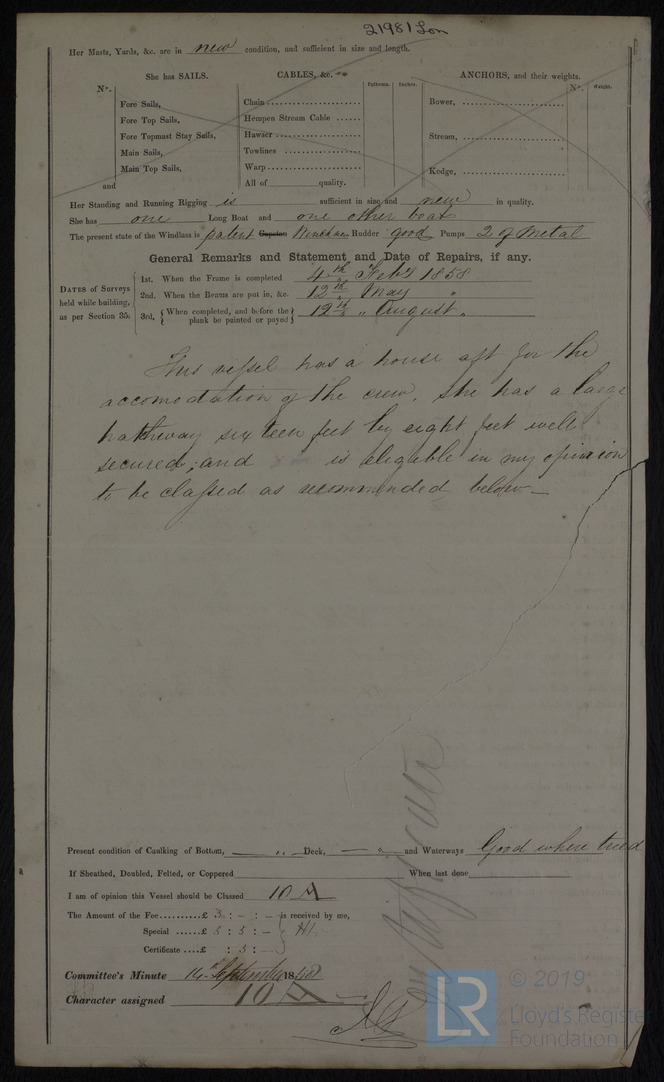 21981 Lon
Her Masts, Yards, &c. are in new condition, and sufficient in size and length.
She has SAILS. CABLES, &c. ANCHORS, and their weights.
Nº. Fathoms. Inches. Nº. Weight.
Fore Sails, Chain Bower,
Fore Top Sails, Hempen Stream Cable
Fore Topmast Stay Sails, Hawser Stream,
Main Sails, Towlines
Main Top Sails, Warp Kedge,
and All of quality.
Her Standing and Running Rigging is sufficient in size and new in quality.
She has one Long Boat and one other boat
The present state of the Windlass is patent Capstan Rudder good Pumps 2 of Metal
General Remarks and Statement and Date of Repairs, if any.
DATES of Surveys held while building, as per Section 35.
1st. When the Frame is completed 4th Feby 1858
2nd. When the Beams are put in, &c. 12th May "
3rd, { When completed, and before the plank be painted or payed } 12th " August "
This vessel has a house aft for the
accomodation of the crew. She has a large
hatchway sixteen feet by eight feet well
secured; and is eligable in my opinion
to be classed as recommended below—
Present condition of Caulking of Bottom, " Deck, " and Waterways Good where tried
If Sheathed, Doubled, Felted, or Coppered When last done
I am of opinion this Vessel should be Classed 10 A
The Amount of the Fee..........£ 3 : - : - is received by me,
Special ......£ 5 : 5 : -
Certificate ....£ : 5 : -
Committee's Minute 14th September 1858
Character assigned 10 A
LR
© 2019
Lloyd's Register
Foundation